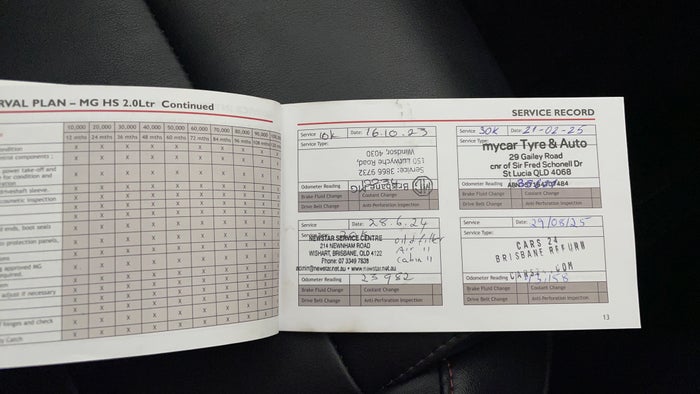 RVAL PLAN – MG HS 2.0Ltr Continued
10,000 20,000 30,000 40,000 50,000 60,000 70,000 80,000 90,000
12 mths 24 mths 36 mths 48 mths 60 mths 72 mths 84 mths 96 mths
ondition
power take-off and
for condition and
driveshaft sleeve.
cosmetic inspection
end, boot seals
protection panels,
approved MG
required.
adjust if necessary
f hinges and check
y Catch
SERVICE RECORD
Service 10k Date: 16.10.23
Service Type:
Brisbane MG
150 Lutwyche Road,
Windsor, 4030
Service: 3866 9732
Odometer Reading
Brake Fluid Change Coolant Change
Drive Belt Change Anti-Perforation Inspection
Service 30K Date: 21-02-25
Service Type:
mycar Tyre & Auto
29 Gailey Road
cnr of Sir Fred Schonell Dr
St Lucia QLD 4068
Odometer Reading
Brake Fluid Change Coolant Change
Drive Belt Change Anti-Perforation Inspection
Service Date: 28.6.24
NEWSTAR SERVICE CENTRE
214 NEWNHAM ROAD
WISHART, BRISBANE, QLD 4122
Phone: 07 3349 7638
admin@newstar.net.au • www.newstar.net.au
oil filter
Air 11
Cabin 11
Odometer Reading 23982
Brake Fluid Change Coolant Change
Drive Belt Change Anti-Perforation Inspection
Service Date: 29/08/25
Service Type:
CARS 24
BRISBANE REFURB
Odometer Reading
Brake Fluid Change Coolant Change
Drive Belt Change Anti-Perforation Inspection
13